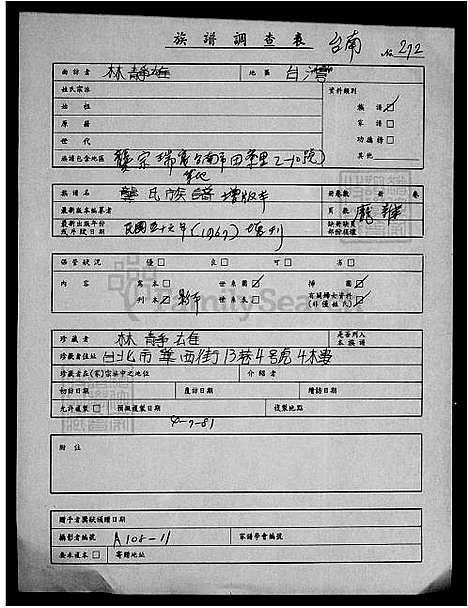 族譜調查表 台南 No 272
面訪者 林靜雄 地區 台灣
姓氏宗派 資料類別
始祖 族譜☑
原籍 家譜□
世代 功德榜□
族譜包含地區 龔宗瑞 台南市 里2-10號) 其他
族譜名 龔氏族譜增版本 冊卷數 冊 卷
最新版本編纂者 頁數
最新出版年份或斤段日期 民國五十六年(1967)
保管狀況 優□ 良□ 可□ 劣□
內容 寫本□ 世系圖☑ 掃圖□
刊本☑影本 世系表□ 有關婦女資料(非僅姓氏)
珍藏者 林靜雄 是否列入本族譜
珍藏者住址 台北市華西街13巷4號4樓
珍藏者在(家)宗族中之地位 介紹者
初訪日期 復訪日期 續訪日期
允許複製□ 預擬複製日期 複製地點
4-7-81
附註
FamilySearch
贈予者獎狀頒贈日期
攝影者編號 A108-11 家譜學會編號
要求複本□ 寄贈地址